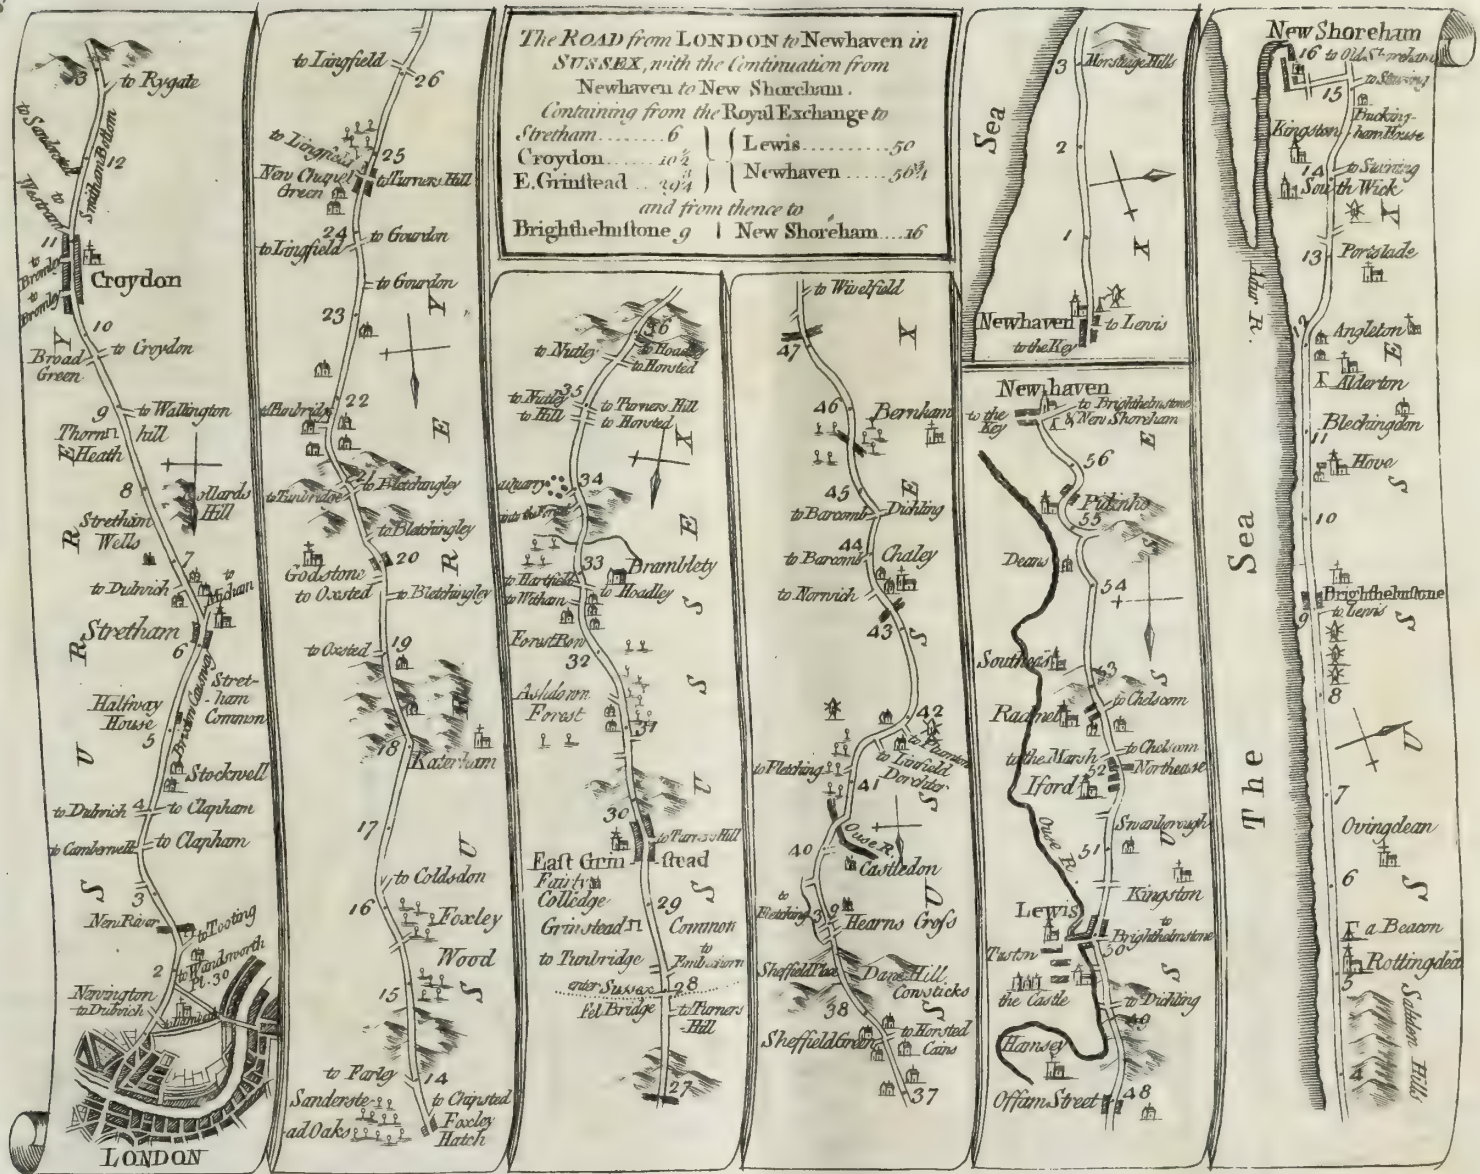 The ROAD from LONDON to Newhaven in
SUSSEX, with the Continuation from
Newhaven to New Shoreham.
Containing from the Royal Exchange to
Stretham ........ 6
Croydon ...... 10½
E. Grinstead .. 29¾
Lewis .......... 50
Newhaven ..... 56¾
and from thence to
Brighthelmstone 9
New Shoreham .... 16
13
to Rygate
to Sanderstead
12
Smitham Bottom
to Westram
11
to Bromley
to Bromley
Croydon
10
Broad Green
to Croydon
9
to Wallington
Thornhill
Heath
8
Pollards Hill
Stretham Wells
7
to Dulwich
to Micham
Stretham
6
Brixton Causway
Stretham Common
Halfway House
5
Stockwell
4
to Dulwich
to Clapham
to Camberwell
to Clapham
3
New River
to Tooting
to Wandsworth Pl. 30
2
Newington
to Dulwich
to Lambeth
LONDON
SURREY
to Lingfield
26
to Lingfield
25
New Chapel Green
to Turners Hill
24
to Lingfield
to Gourdon
to Gourdon
23
22
to Tunbridge
21
to Tunbridge
to Bletchingley
to Bletchingley
20
Godstone
to Oxsted
to Bletchingley
19
to Oxsted
18
Katerham
17
to Coldsdon
16
Foxley
Wood
15
to Farley
14
to Chipsted
Sandersteadoaks
Foxley Hatch
SURREY
36
to Nutley
to Hoadley
to Horsted
35
to Nutley
to Hill
to Turners Hill
to Horsted
34
a Quarry
into the Forest
33
Bramblety
to Hartfield
to Witham
to Hoadley
Forest Row
32
Ashdown Forest
31
30
to Turners Hill
East Grinstead
Fairly Colledge
29
Grinstead
Common
to Tunbridge
enter Sussex
28
Fel Bridge
to Turners Hill
27
SUSSEX
to Wivelfield
47
46
Bernham
45
to Barcomb
Dichling
44
to Barcomb
Chaley
to Norwich
43
42
to Linfield
to Fletching
41
Ouse R.
40
Castledon
to Fletching
39
Hearns Cross
Sheffield Place
Dane Hill
Comsticks
38
Sheffield Green
to Horsted Cains
37
SUSSEX
Sea
3
Horstage Hills
2
1
Newhaven
to Lewis
to the Key
X
Newhaven
to the Key
to Brighthelmstone
& New Shoreham
56
Pidinho
55
Deans
54
53
Southeas
to Chelscom
Radmel
to the Marsh
to Chelscom
52
Northease
Iford
Swanborough
51
Ouse R.
Kingston
Lewis
to Brighthelmstone
50
the Castle
to Dichling
49
Hamsey
Offam Street
48
SUSSE
New Shoreham
16
to Old Shoreham
to Stening
15
Buckingham House
Kingston
14
to Stening
South Wick
13
Portslade
Adur R.
12
Angleton
Alderton
Blechingdon
11
Hove
10
Brighthelmstone
9
to Lewis
8
7
Ovingdean
6
a Beacon
Rottingdea
5
Saltden Hills
4
The Sea
SUSSEX